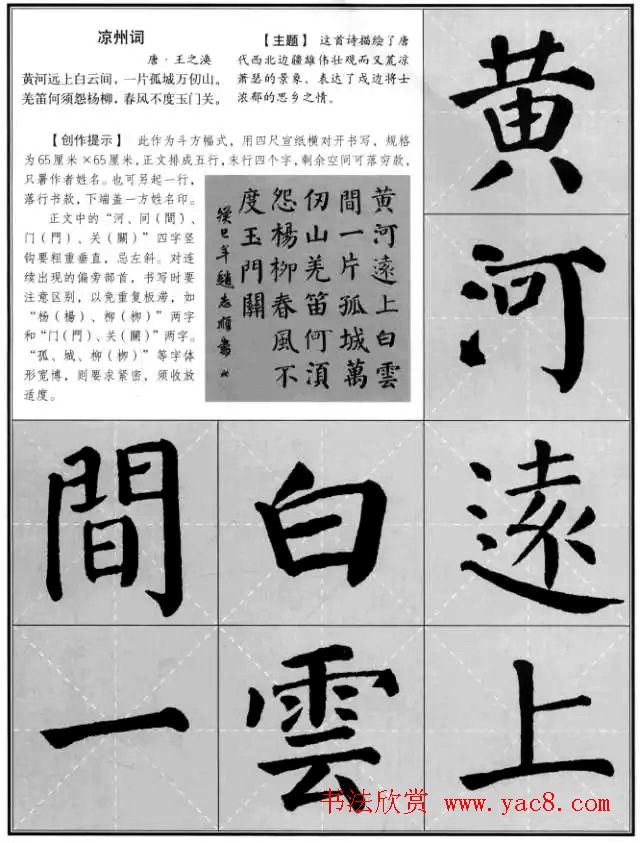 凉州词
唐·王之涣
黄河远上白云间，一片孤城万仞山。
羌笛何须怨杨柳，春风不度玉门关。
【主题】 这首诗描绘了唐
代西北边疆雄伟壮观而又荒凉
萧瑟的景象，表达了戍边将士
浓郁的思乡之情。
【创作提示】 此作为斗方幅式，用四尺宣纸横对开书写，规格
为65厘米×65厘米，正文排成五行，末行四个字，剩余空间可落穷款，
只署作者姓名。也可另起一行，
落行书款，下端盖一方姓名印。
正文中的“河、间（間）、
门（門）、关（關）”四字竖
钩要粗重垂直，忌左斜。对连
续出现的偏旁部首，书写时要
注意区别，以免重复板滞，如
“杨（楊）、柳（柳）”两字
和“门（門）、关（關）”两字。
“孤、城、柳（柳）”等字体
形宽博，则要求紧密，须收放
适度。
黄河遠上白雲
間一片孤城萬
仞山羌笛何須
怨楊柳春風不
度玉門關
黄
河
遠
上
白
雲
間
一
书法欣赏 www.yac8.com